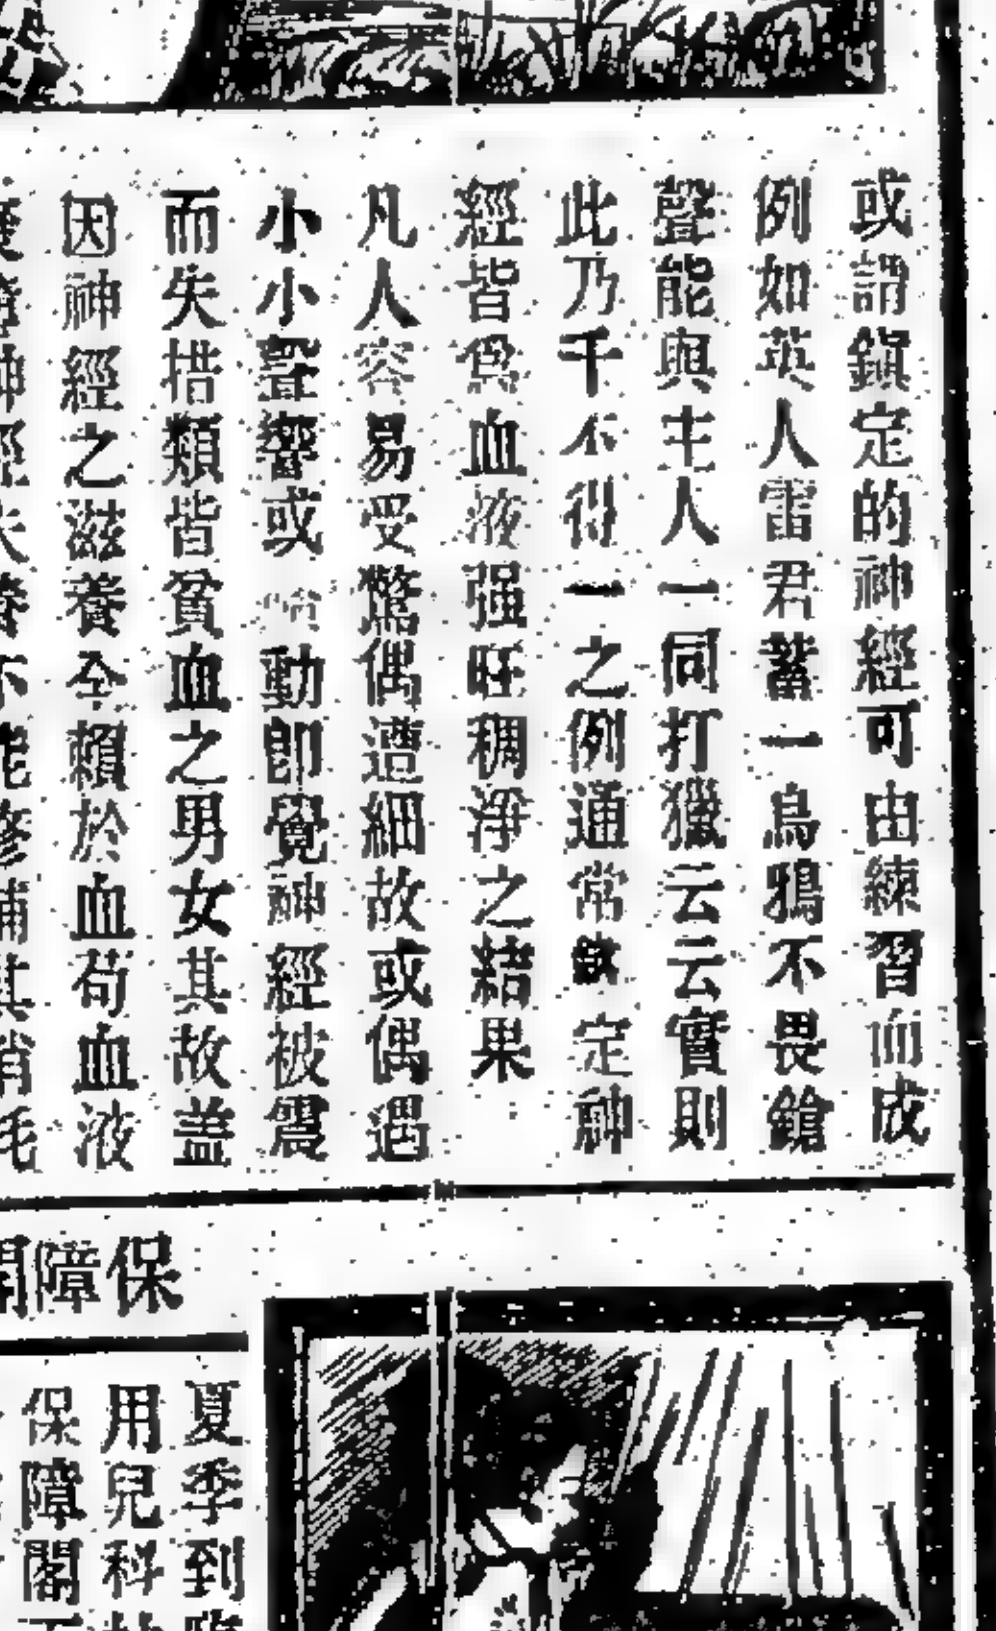 或謂鎭定的神經可由練習而成
例如英人雷君蓄一烏鴉不畏鎗
聲能與主人一同打獵云云實則
此乃千不得一之例通常鎭定神
經皆爲血液强旺稠淨之結果
凡人容易受驚偶遭細故或偶遇
小小聲響或動卽覺神經被震
而失措類皆貧血之男女其故盖
因神經之滋養全賴於血苟血液
神經失養不能修補其消耗
保障
夏季到
用兒科
保障閣